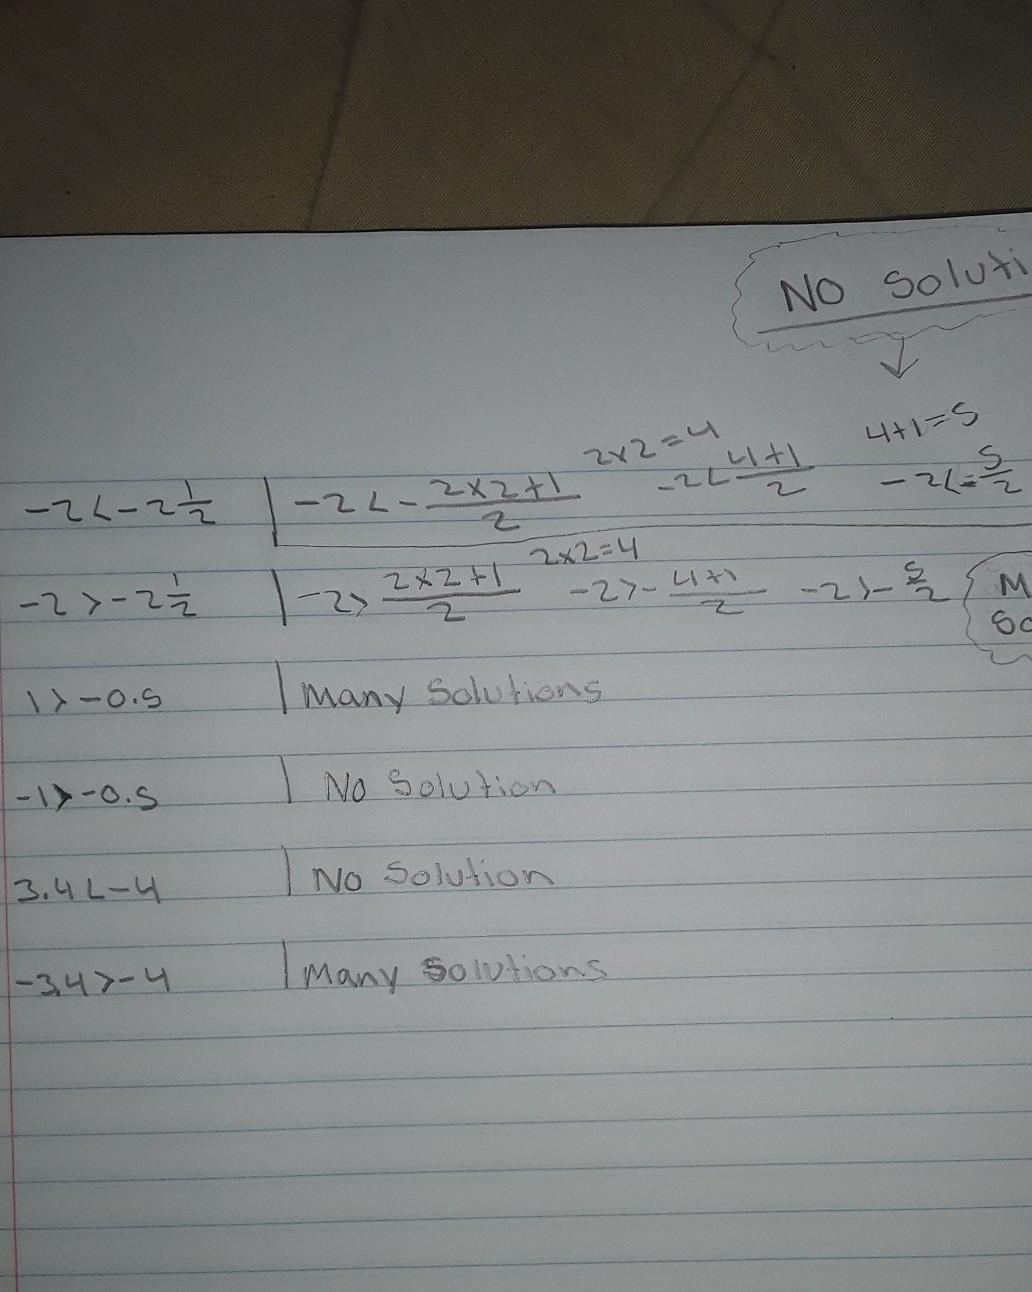 NO Soluti
2x2=4 4+1=5
-2<-2 1/2 | -2<-2x2+1/2 -2<-4+1/2 -2<-5/2
2x2=4
-2>-2 1/2 | -2>2x2+1/2 -2>-4+1/2 -2>-5/2 M
So
1>-0.5 | Many Solutions
-1>-0.5 | No Solution
3.4<-4 | No Solution
-3.4>-4 | Many Solutions